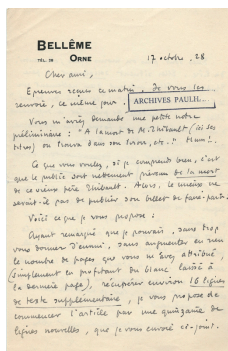 BELLÊME
TÉL. 28 ORNE
17 octobre 28
Cher ami,
Epreuves reçues ce matin. Je vous les
renvoie, ce même jour.
ARCHIVES PAULH...
Vous m'aviez demandé une petite note
préliminaire : "A la mort de M. Thibault (ici ses
titres) on trouva dans son tiroir, etc.." Hum!..
Ce que vous voulez, si je comprends bien, c'est
que le public soit nettement prévenu de la mort
de ce vieux père Thibault. Alors, le mieux ne
serait-il pas de publier son billet de faire-part.
Voici ce que je vous propose :
Ayant remarqué que je pouvais, sans trop
vous donner d'ennui, sans augmenter en rien
le nombre de pages que vous m'avez attribué,
(simplement en profitant du blanc laissé à
la dernière page), récupérer environ 16 lignes
de texte supplémentaire, je vous propose de
commencer l'article par une quinzaine de
lignes nouvelles, que je vous envoie ci-joint.